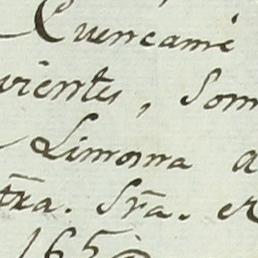 Cuencamé
vientes, Som
Limosna a
tra. Sra. e
165